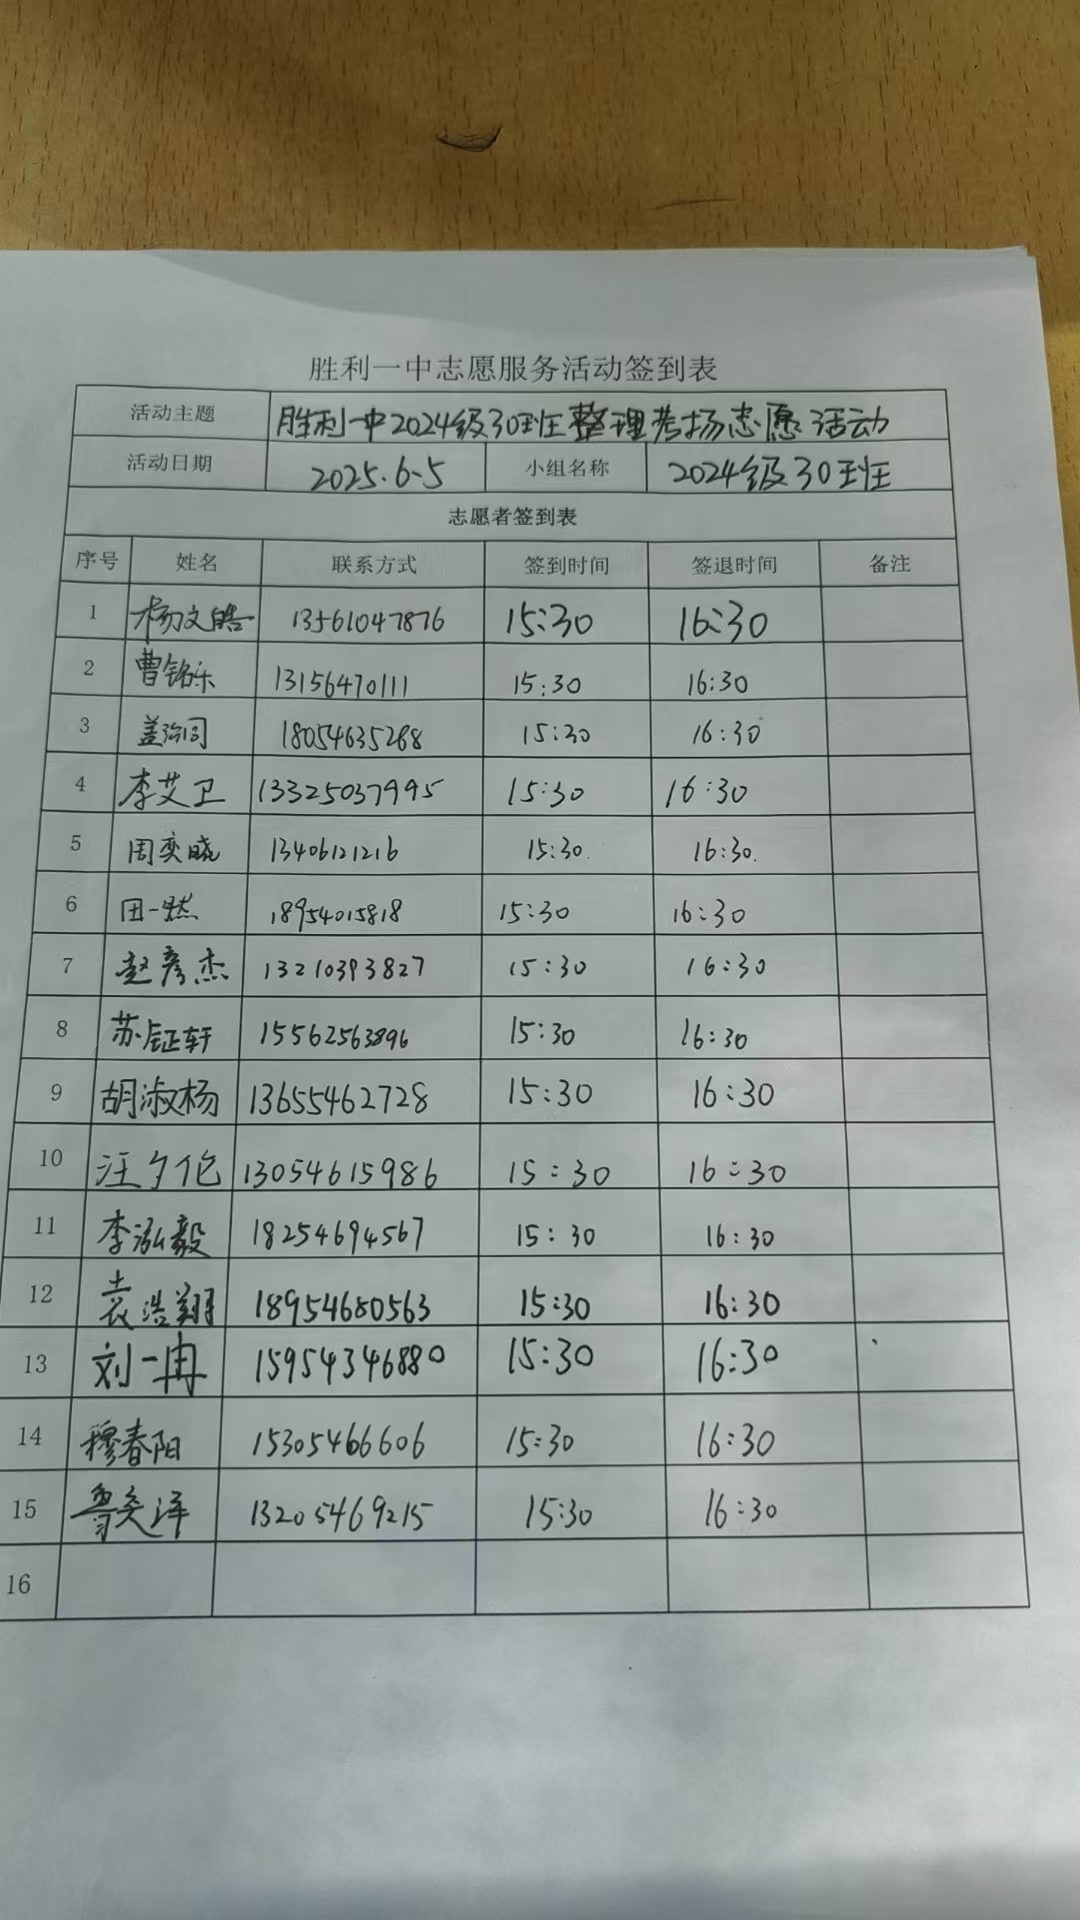 胜利一中志愿服务活动签到表
活动主题 胜利一中2024级30班整理考场志愿活动
活动日期 2025.6.5 小组名称 2024级30班
志愿者签到表
序号 姓名 联系方式 签到时间 签退时间 备注
1 杨文皓 13561047876 15:30 16:30
2 曹铭乐 13156470111 15:30 16:30
3 盖 18054635268 15:30 16:30
4 李艾卫 13325037995 15:30 16:30
5 周奕晓 13406121216 15:30. 16:30.
6 田一然 18954015818 15:30 16:30
7 赵彦杰 13210393827 15:30 16:30
8 苏钲轩 15562563896 15:30 16:30
9 胡淑杨 13655462728 15:30 16:30
10 汪夕伦 13054615986 15:30 16:30
11 李泓毅 18254694567 15:30 16:30
12 袁浩翔 18954680563 15:30 16:30
13 刘一冉 15954346880 15:30 16:30
14 穆春阳 15305466606 15:30 16:30
15 鲁奕泽 13205469215 15:30 16:30
16